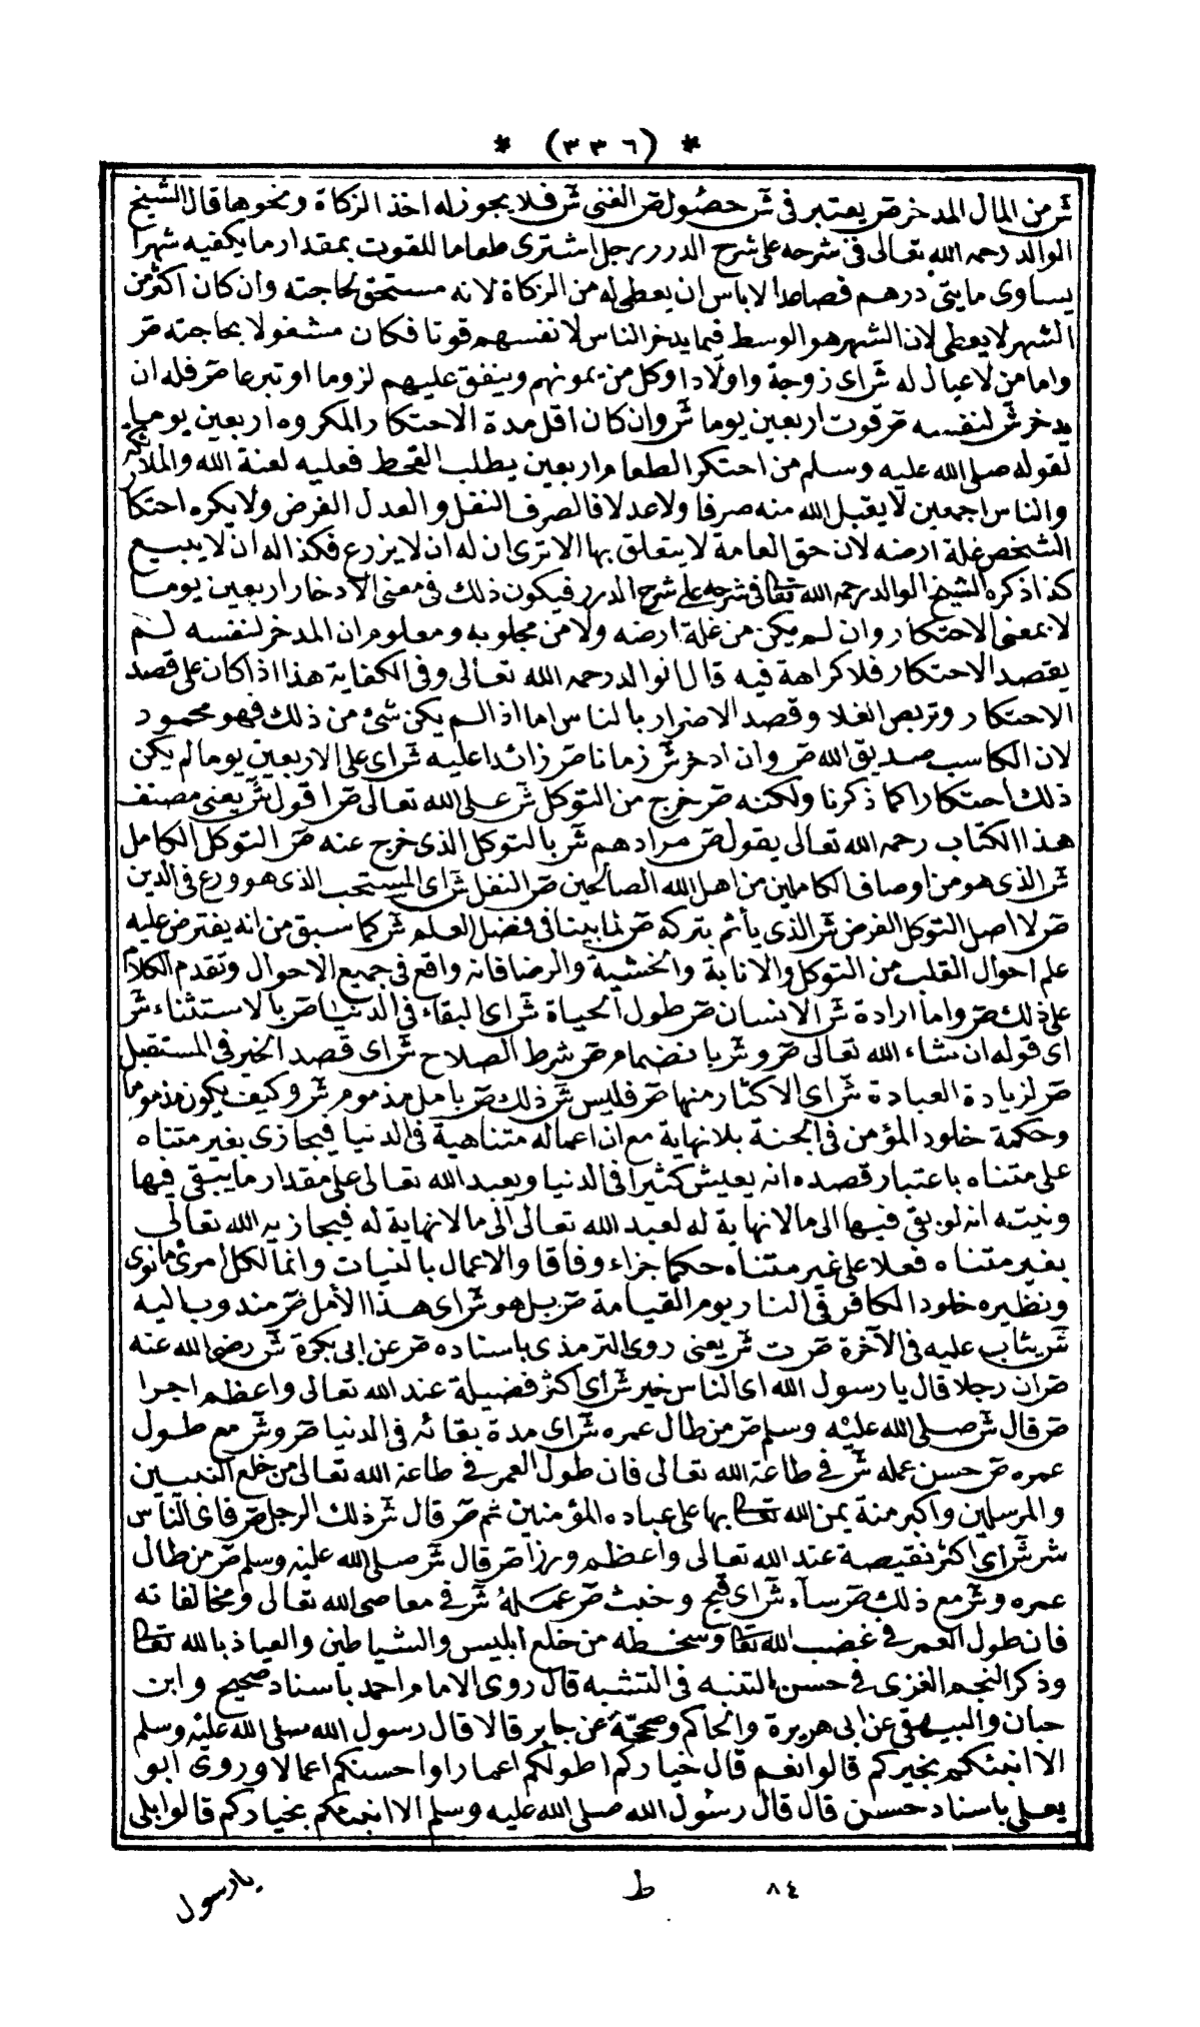 * (٣٣٦) *
ش من المال المدخر ص يعتبر فى ش حصول ص الغنى ش فلا يجوز له اخذ الزكاة ونحوها قال الشيخ
الوالد رحمه الله تعالى فى شرحه على شرح الدرر رجل اشترى طعاما للقوت بمقدار ما يكفيه شهرا
يساوى مايتى درهم فصاعدا لاباس ان يعطى له من الزكاة لانه مستحق لحاجته وان كان اكثر من
الشهر لا يعطى لان الشهر هو الوسط فيما يدخر الناس لانفسهم قوتا فكان مشغولا بحاجته ص
واما من لا عيال له ش اى زوجة واولادا وكل من يمونهم وينفق عليهم لزوما او تبرعا ص فله ان
يدخر ش لنفسه ص قوت اربعين يوما ش وان كان اقل مدة الاحتكار المكروه اربعين يوما
لقوله صلى الله عليه وسلم من احتكر الطعام اربعين يطلب القحط فعليه لعنة الله والملائكة
والناس اجمعين لا يقبل الله منه صرفا ولا عدلا فالصرف النفل والعدل الفرض ولا يكره احتكا
الشخص غلة ارضه لان حق العامة لا يتعلق بها الا ترى ان له ان لا يزرع فكذا له ان لا يبيع
كذا ذكره الشيخ الوالد رحمه الله تعالى فى شرحه على شرح الدرر فيكون ذلك فى معنى الادخار اربعين يوما
لا بمعنى الاحتكار وان لم يكن من غلة ارضه ولا من مجلوبه ومعلوم ان المدخر لنفسه لم
يقصد الاحتكار فلا كراهة فيه قال الوالد رحمه الله تعالى وفى الكفاية هذا اذا كان على قصد
الاحتكار وتربص الغلا وقصد الاضرار بالناس اما اذا لم يكن شئ من ذلك فهو محمود
لان الكاسب صديق الله ص وان ادخر ش زمانا ص زائدا عليه ش اى على الاربعين يوما لم يكن
ذلك احتكارا كما ذكرنا ولكنه ص خرج من التوكل ش على الله تعالى ص اقول ش يعنى مصنف
هذا الكتاب رحمه الله تعالى يقول ص مرادهم ش بالتوكل الذى خرج عنه ص التوكل الكامل
ش الذى هو من اوصاف الكاملين من اهل الله الصالحين ص النفل ش اى المستحب الذى هو ورع فى الدين
ص لا اصل التوكل الفرض ش الذى يأثم بتركه ص لما بينا فى فضل العلم ش كما سبق من انه يفترض عليه
علم احوال القلب من التوكل والانابة والخشية والرضا فانه واقع فى جميع الاحوال وتقدم الكلام
على ذلك ص واما ارادة ش الانسان ص طول الحياة ش اى البقاء فى الدنيا ص بالاستثناء ش
اى قوله ان شاء الله تعالى ص و ش بانضمام ص شرط الصلاح ش اى قصد الخير فى المستقبل
ص لزيادة العبادة ش اى الاكثار منها ص فليس ش ذلك ص بامل مذموم ش وكيف يكون مذموما
وحكمة خلود المؤمن فى الجنة بلا نهاية مع ان اعماله متناهية فى الدنيا فيجازى بغير متناه
على متناه باعتبار قصده انه يعيش كثيرا فى الدنيا ويعبد الله تعالى على مقدار ما يبقى فيها
ونيته انه لو بقى فيها الى مالا نهاية له لعبد الله تعالى الى مالا نهاية له فيجازيه الله تعالى
بغير متناه فعلا على غير متناه حكما جزاء وفاقا والاعمال بالنيات وانما لكل امرئ مانوى
ونظيره خلود الكافر فى النار يوم القيامة ص بل هو ش اى هذا الأمل ص مندوب اليه
ش يثاب عليه فى الآخرة ص ت ش يعنى روى الترمذى باسناده ص عن ابى بكرة ش رضى الله عنه
ص ان رجلا قال يا رسول الله اى الناس خير ش اى اكثر فضيلة عند الله تعالى واعظم اجرا
ص قال ش صلى الله عليه وسلم ص من طال عمره ش اى مدة بقائه فى الدنيا ص و ش مع طول
عمره ص حسن عمله ش فى طاعة الله تعالى فان طول العمر فى طاعة الله تعالى من خلع النبيين
والمرسلين واكبر منة يمن الله تعالى بها على عباده المؤمنين ثم ص قال ش ذلك الرجل ص فاى الناس
شر ش اى اكثر نقيصة عند الله تعالى واعظم وزرا ص قال ش صلى الله عليه وسلم ص من طال
عمره و ش مع ذلك ص ساء ش اى قبح وخبث ص عمله ش فى معاصى الله تعالى ومخالفاته
فان طول العمر فى غضب الله تعالى وسخطه من خلع ابليس والشياطين والعياذ بالله تعالى
وذكر النجم الغزى فى حسن التنبه فى التشبه قال روى الامام احمد بأسناد صحيح وابن
حبان والبيهقى عن ابى هريرة والحاكم وصححه عن جابر قالا قال رسول الله صلى الله عليه وسلم
الا انبئكم بخيركم قالوا نعم قال خياركم اطولكم اعمارا واحسنكم اعمالا وروى ابو
يعلى باسناد حسن قال قال رسول الله صلى الله عليه وسلم الا انبئكم بخياركم قالوا بلى
٨٤ ط يارسول